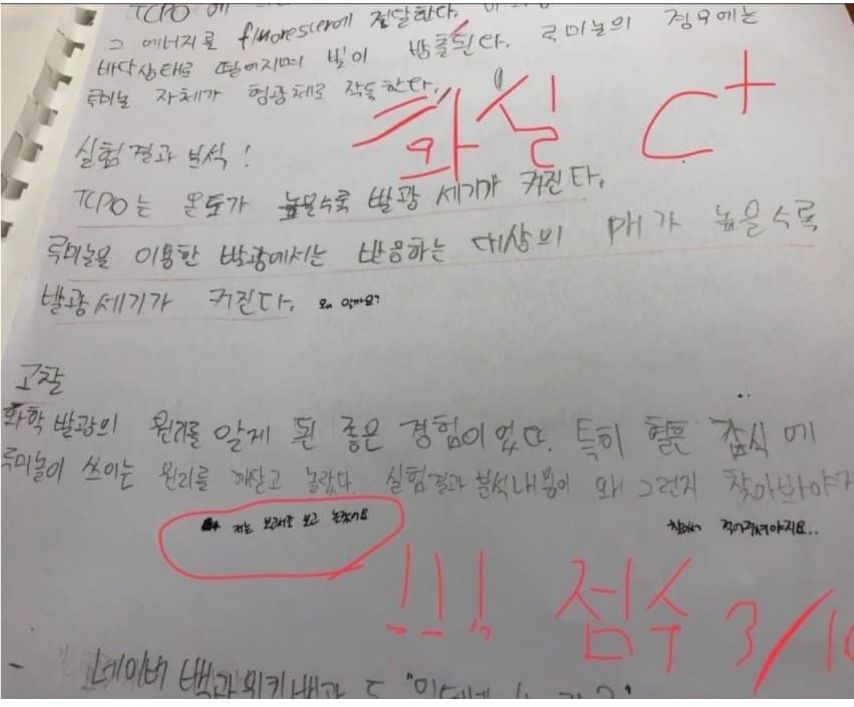 TCPO에
그 에너지를 fluorescer에 전달한다.
바닥상태로 떨어지며 빛이 방출된다. 루미놀의 경우에는
루미놀 자체가 형광체로 작동한다.
화실 C+
실험결과 분석!
TCPO는 온도가 높을수록 발광 세기가 커진다.
루미놀을 이용한 발광에서는 반응하는 대상의 pH가 높을수록
발광세기가 커진다. 왜 일까요?
고찰
화학 발광의 원리를 알게 된 좋은 경험이었다. 특히 혈흔 감식에
루미놀이 쓰이는 원리를 깨닫고 놀랐다. 실험결과 분석내용이 왜 그런지 찾아봐야
저는 보고서를 보고 놀랐어요
찾아서 적어주셔야지요..
!!! 점수 3/10
- 네이버 백과 위키백과